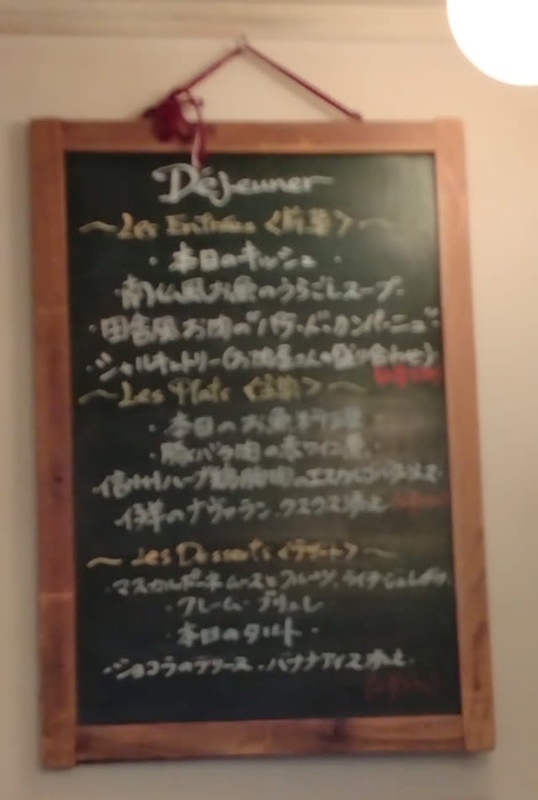 Déjeuner
~ Les Entrées <前菜> ~
・本日のキッシュ・
・南仏風お魚のうらごしスープ・
・田舎風お肉の"パテ・ド・カンパーニュ"・
・シャルキュトリー(お肉屋さんの盛り合わせ)
~ Les Plats <主菜> ~
・本日のお魚料理
・豚バラ肉の赤ワイン煮・
・信州ハーブ鶏胸肉のエスカルゴバター
・仔羊のナヴァラン、クスクス添え
~ Les Desserts <デザート> ~
・マスカルポーネムースとフルーツ、
・クレーム・ブリュレ
・本日のタルト・
・ショコラのテリーヌ、バナナアイス添え